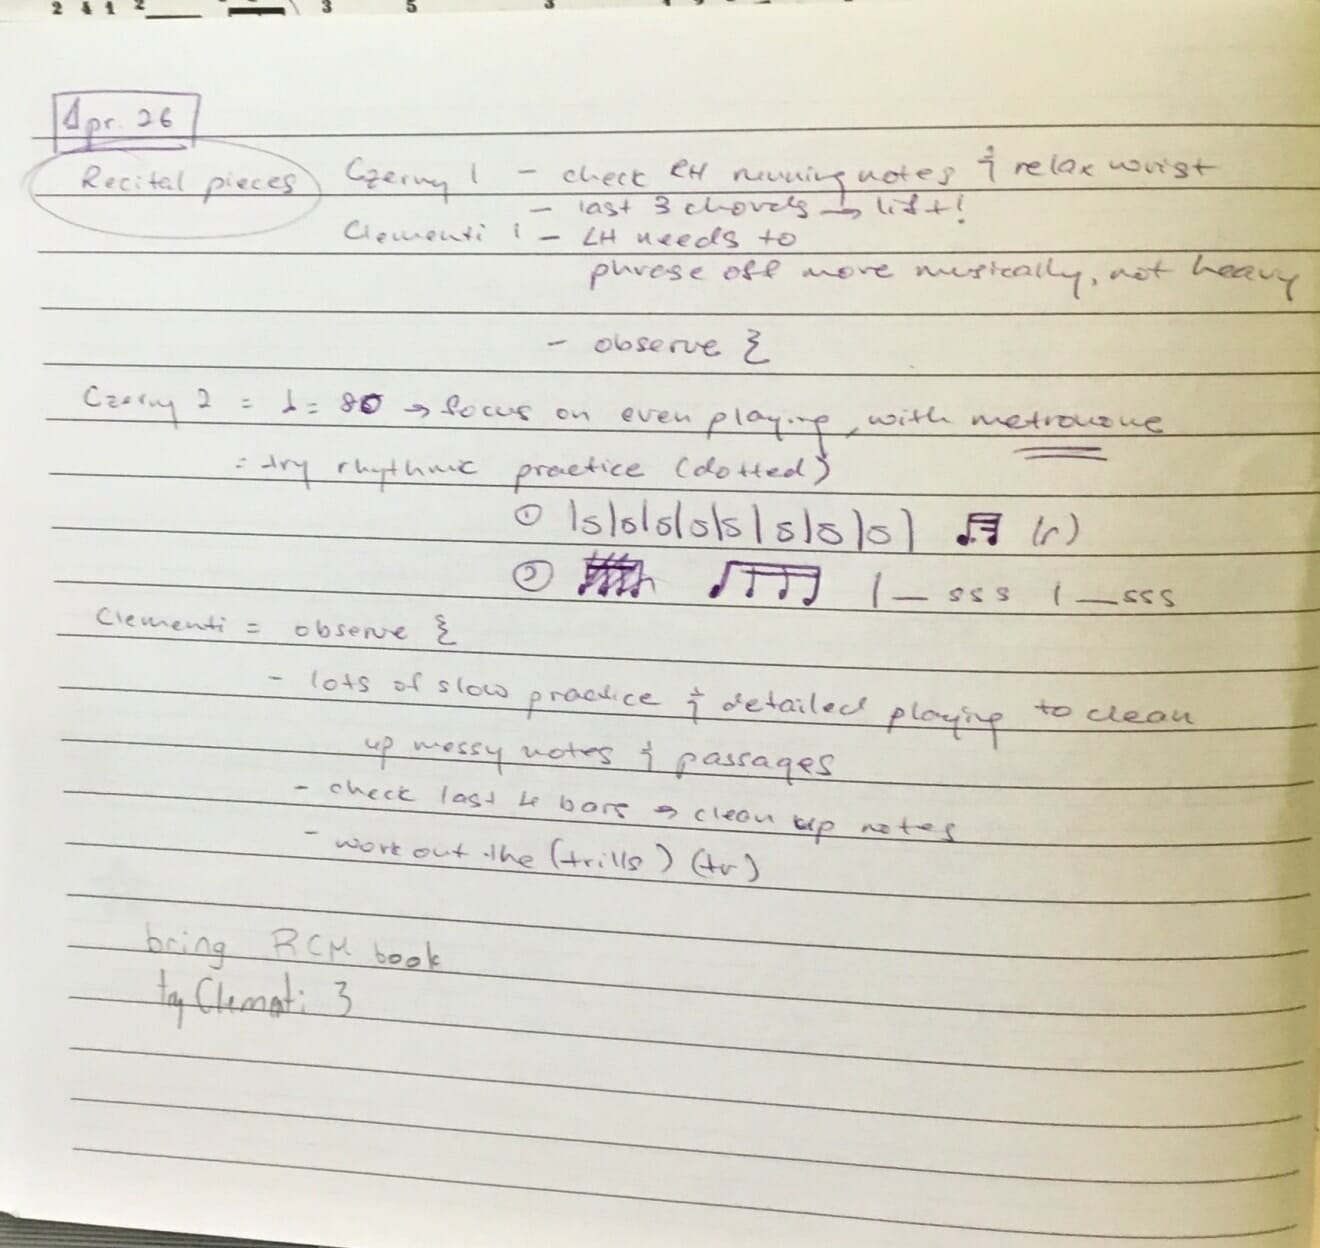 2 4 1 2 3 5 3
Apr. 26
Recital pieces Czerny 1 - check RH running notes & relax wrist
- last 3 chords → lift!
Clementi 1 - LH needs to
phrase off more musically, not heavy
- observe 𝄽
Czerny 2 = ♩= 80 → focus on even playing, with metronome
= try rhythmic practice (dotted)
① l s l s l s l s l s l s l s l s l (r)
② l _ s s s l _ s s s
Clementi = observe 𝄽
- lots of slow practice & detailed playing to clean
up messy notes & passages
- check last 4 bars → clean up notes
- work out the (trills) (tr)
bring RCM book
try Clementi 3